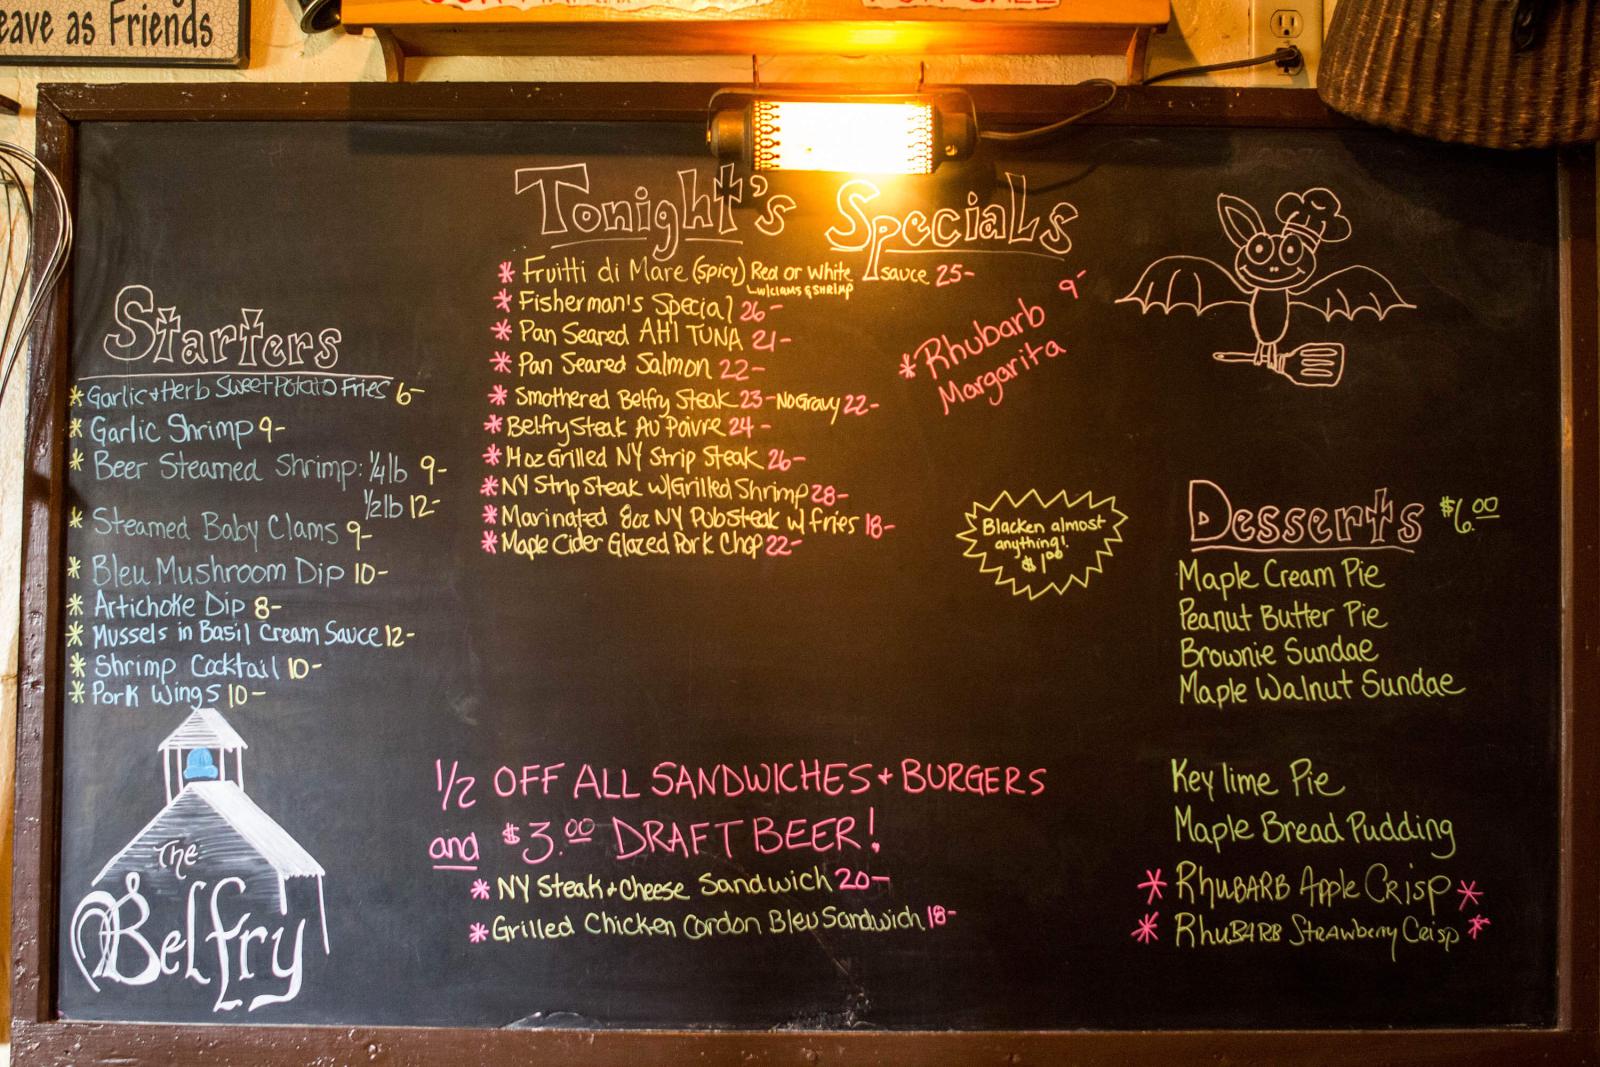 eave as Friends
Starters
*Garlic + Herb Sweet Potato Fries 6-
* Garlic Shrimp 9-
* Beer Steamed Shrimp: 1/4 lb 9-
1/2 lb 12-
* Steamed Baby Clams 9-
* Bleu Mushroom Dip 10-
* Artichoke Dip 8-
* Mussels in Basil Cream Sauce 12-
* Shrimp Cocktail 10-
* Pork Wings 10-
The
Belfry
Tonight's Specials
* Fruitti di Mare (Spicy) Red or White sauce 25-
w/clams & SHRIMP
* Fisherman's Special 26-
* Pan Seared AHI TUNA 21-
* Pan Seared Salmon 22-
* Smothered Belfry Steak 23- No Gravy 22-
* Belfry Steak Au Poivre 24-
* 14oz Grilled NY Strip Steak 26-
* NY Strip Steak w/Grilled Shrimp 28-
* Marinated 8oz NY Pub Steak w/ fries 18-
* Maple Cider Glazed Pork Chop 22-
* Rhubarb 9-
Margarita
Blacken almost
anything!
$1.00
1/2 OFF ALL SANDWICHES + BURGERS
and $3.00 DRAFT BEER!
* NY Steak + Cheese Sandwich 20-
* Grilled Chicken Cordon Bleu Sandwich 18-
Desserts $6.00
Maple Cream Pie
Peanut Butter Pie
Brownie Sundae
Maple Walnut Sundae
Key lime Pie
Maple Bread Pudding
* RHUBARB Apple Crisp *
* RHUBARB Strawberry Crisp *